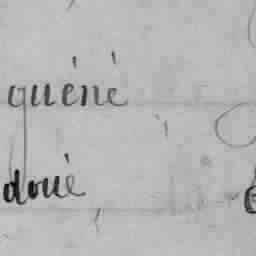 quéné
doué